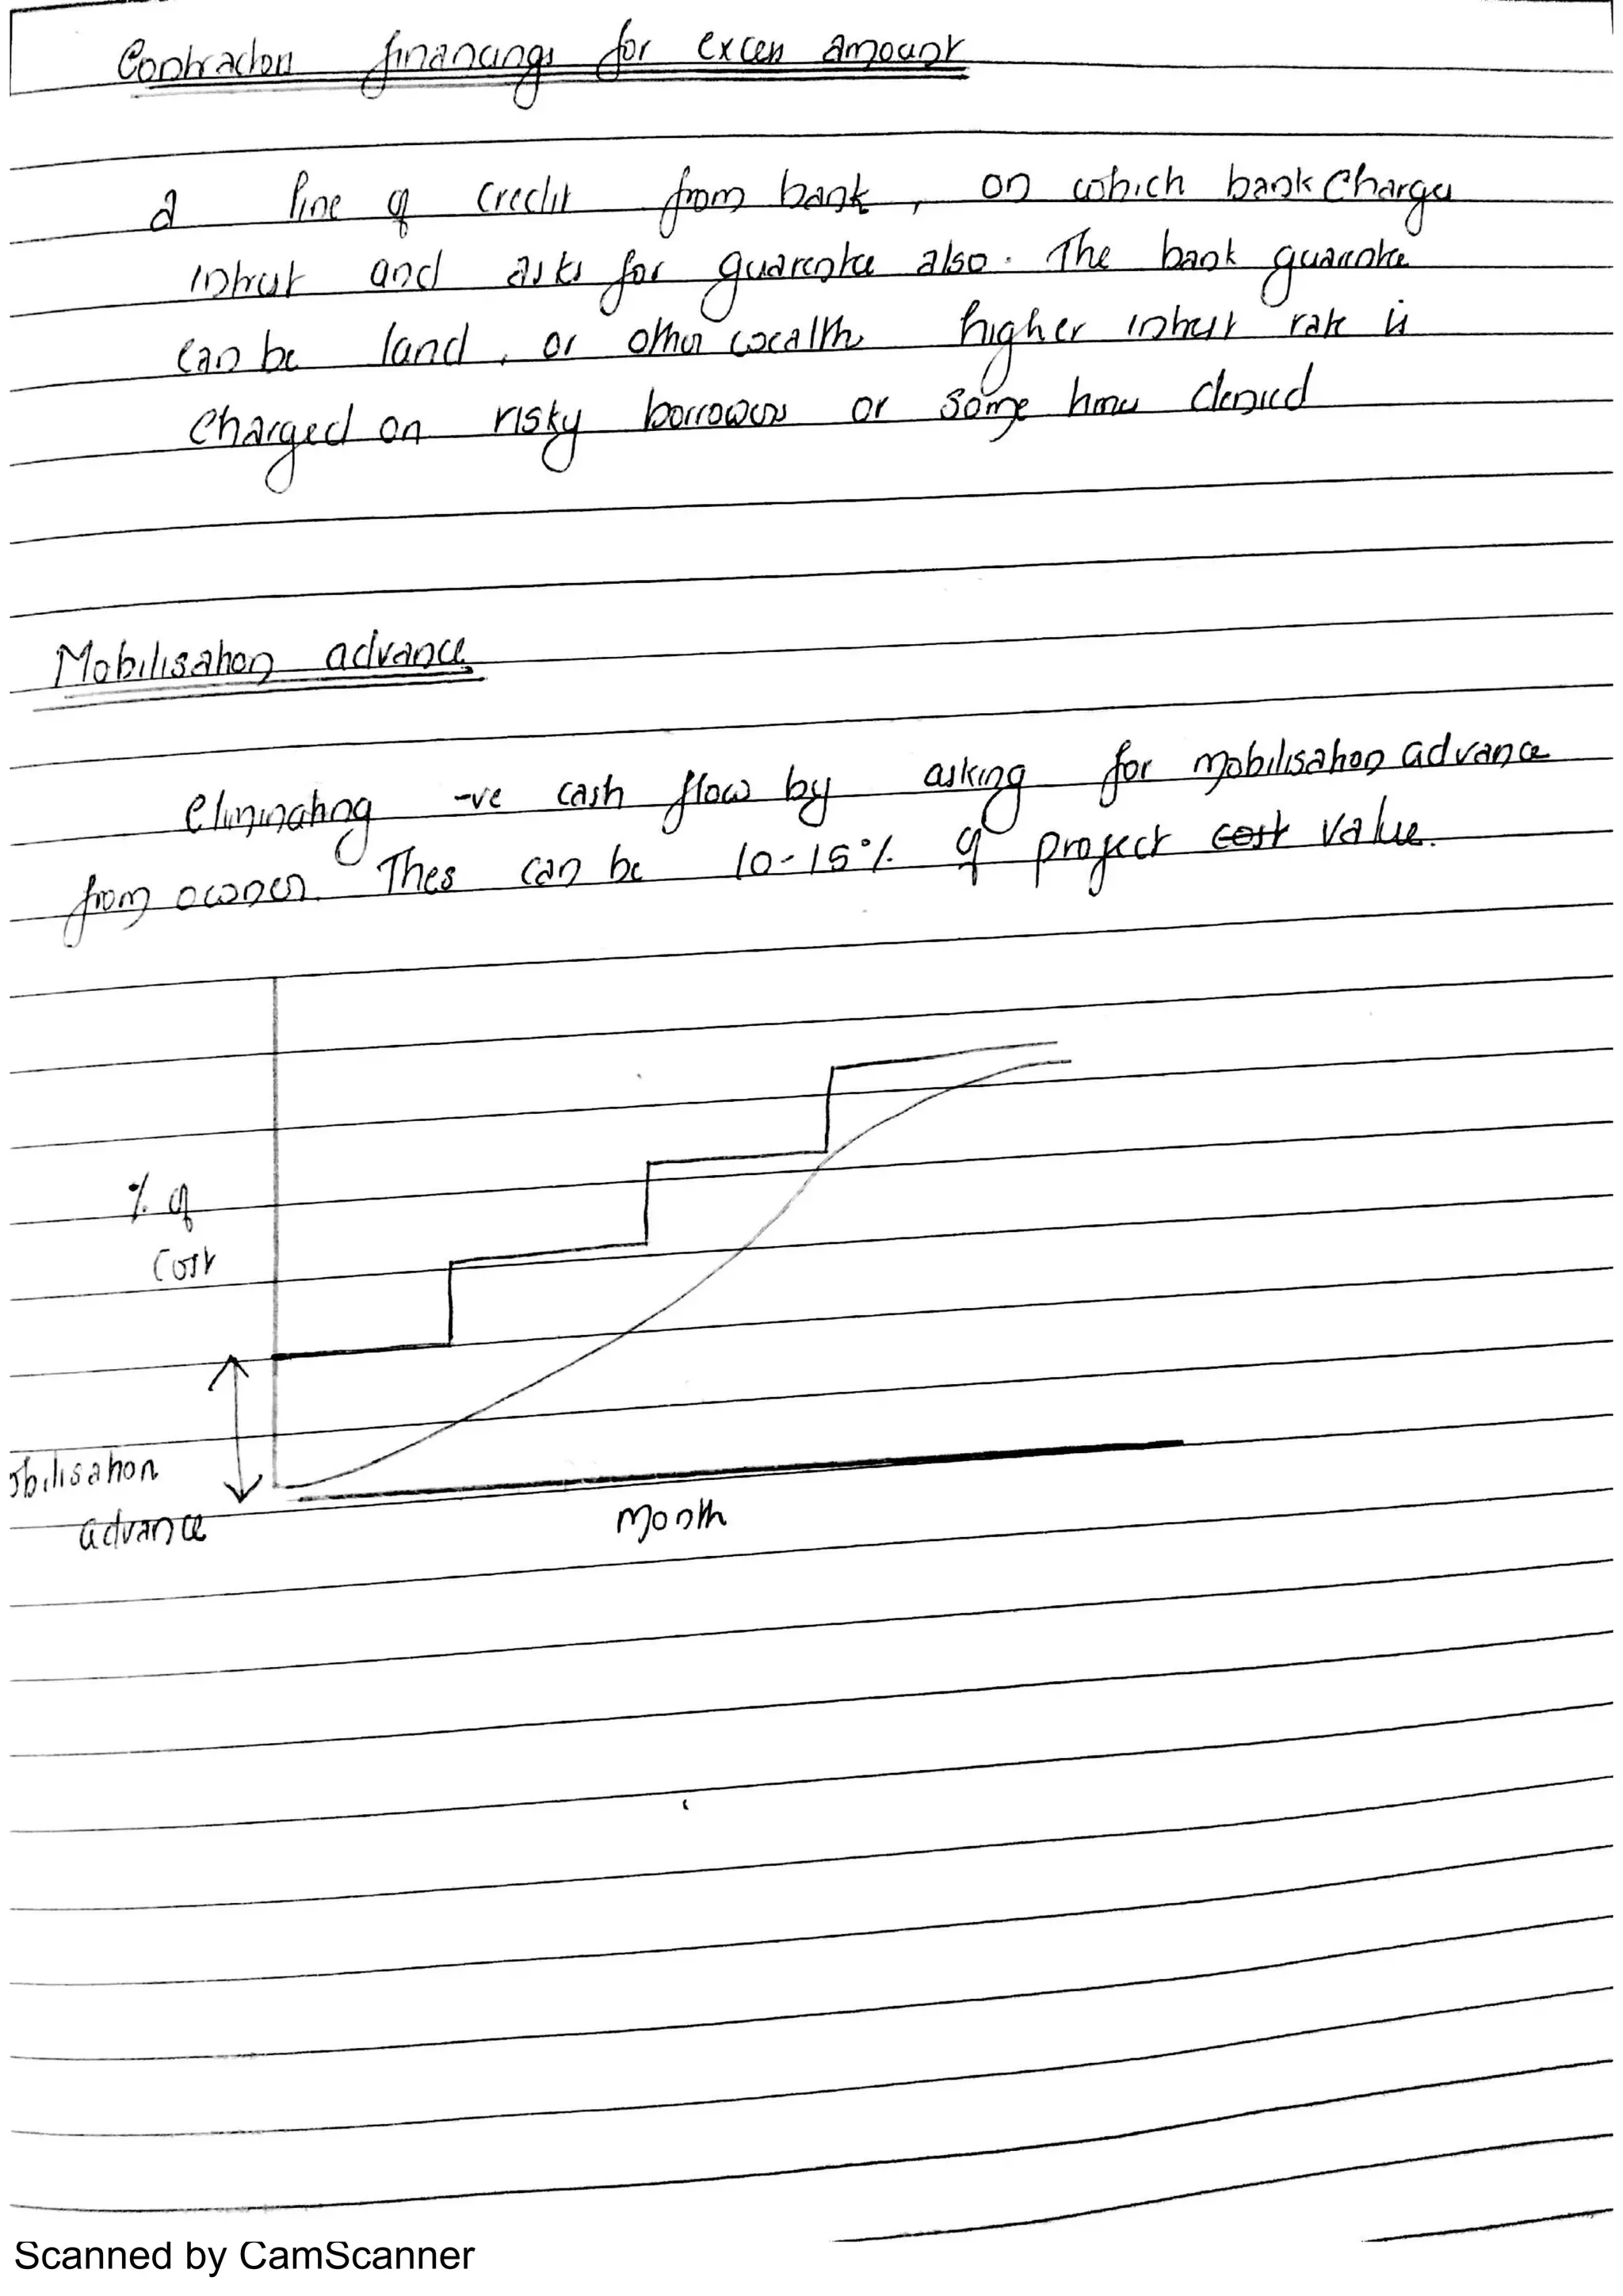 Contractors financings for excess amount
a line of credit from bank, on which bank charges
interest and asks for guarentee also. The bank guarantee
can be land, or other wealth higher interest rate is
charged on risky borrowers or some times denied
Mobilisation advance
eliminating -ve cash flow by asking for mobilisation advance
from owner. Thes can be 10-15% of project cost value.
% of
cost
obilisation
advance
Month
Scanned by CamScanner